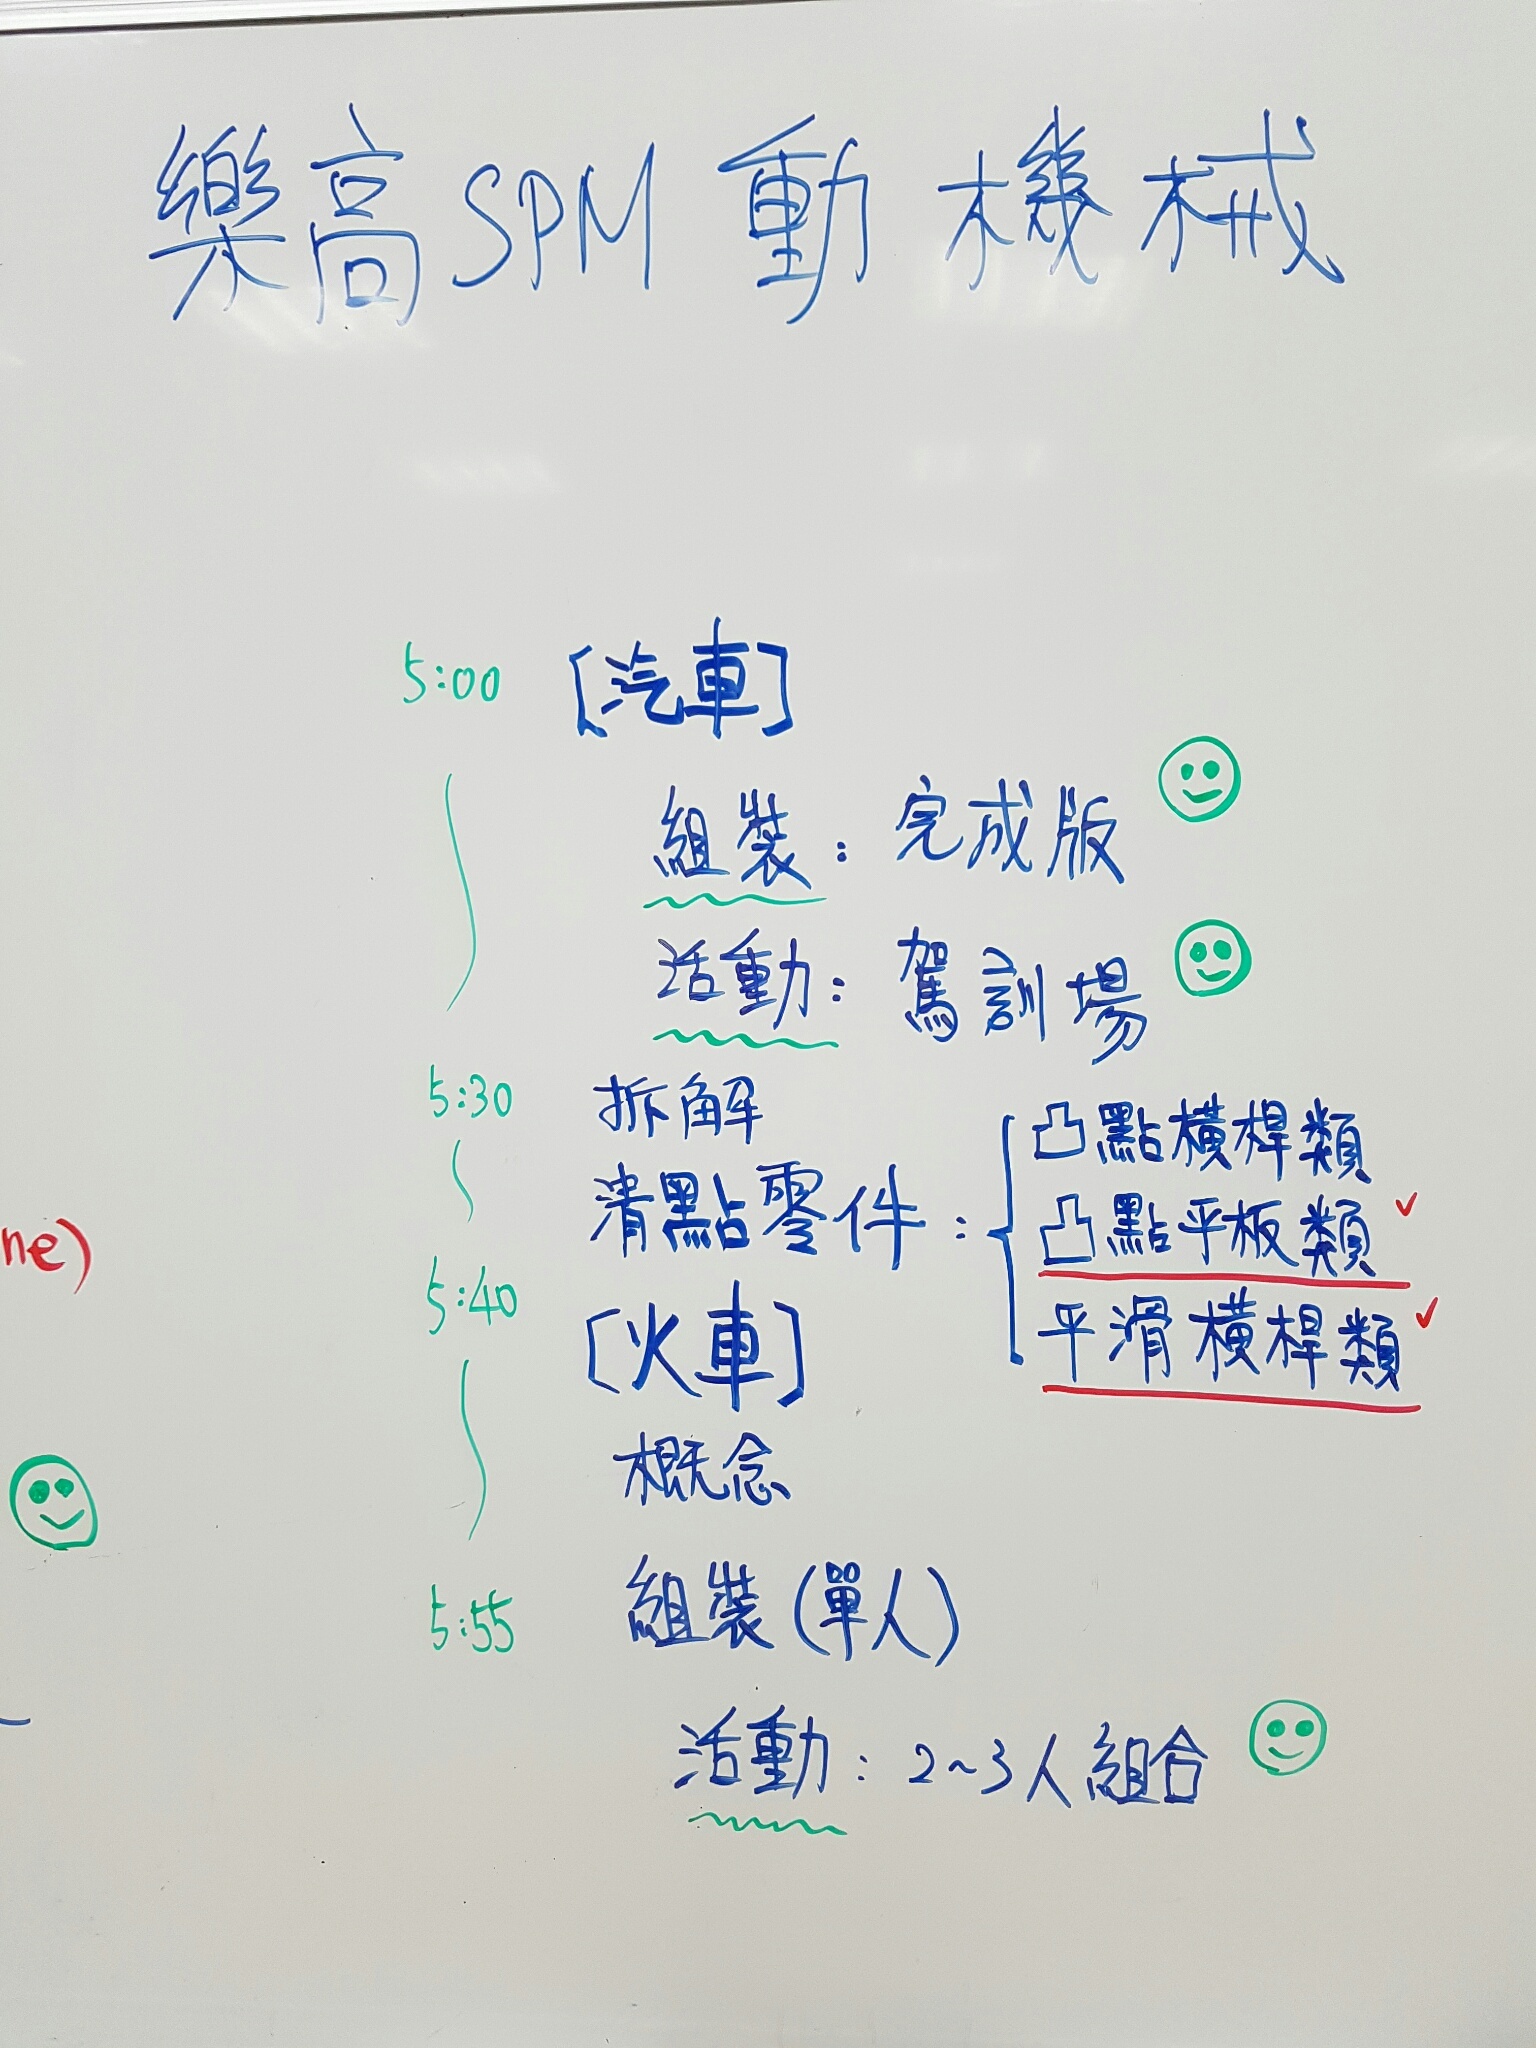 樂高SPM動機械
5:00 [汽車]
組裝：完成版
活動：駕訓場
5:30 拆解
清點零件：
凸點橫桿類
凸點平板類 ✓
平滑橫桿類 ✓
ne)
5:40 [火車]
概念
5:55 組裝(單人)
活動：2~3人組合